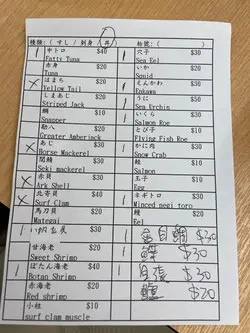 種類：( すし / 刺身 / 丼 )
枱號：( )
1 中トロ $40
Fatty Tuna
赤身 $20
Tuna
x はまち $20
Yellow Tail
しまあじ $20
Striped Jack
鯛 $20
Snapper
助八 $20
Greater Amberjack
x あじ $30
Horse Mackerel
関鯖 $30
Seki mackerel
x 赤貝 $20
Ark Shell
x 北寄貝 $20
Surf Clam
馬刀貝 $20
Mategai
甘海老 $20
Sweet Shrimp
1 ぼたん海老 $40
Botan Shrimp
赤海老 $20
Red shrimp
小柱 $20
surf clam muscle
1 穴子 $30
Sea Eel
いか $20
Squid
えんかわ $30
Enkawa
1 うに $50
Sea Urchin
いくら $30
Salmon Roe
とび子 $10
Flying Fish Roe
1 かに肉 $30
Snow Crab
鮭 $20
Salmon
玉子 $10
Egg
1 ネギトロ $30
Minced negi toro
鰻 $20
Eel
金目鯛 $30
1 $30
1 $30
$20